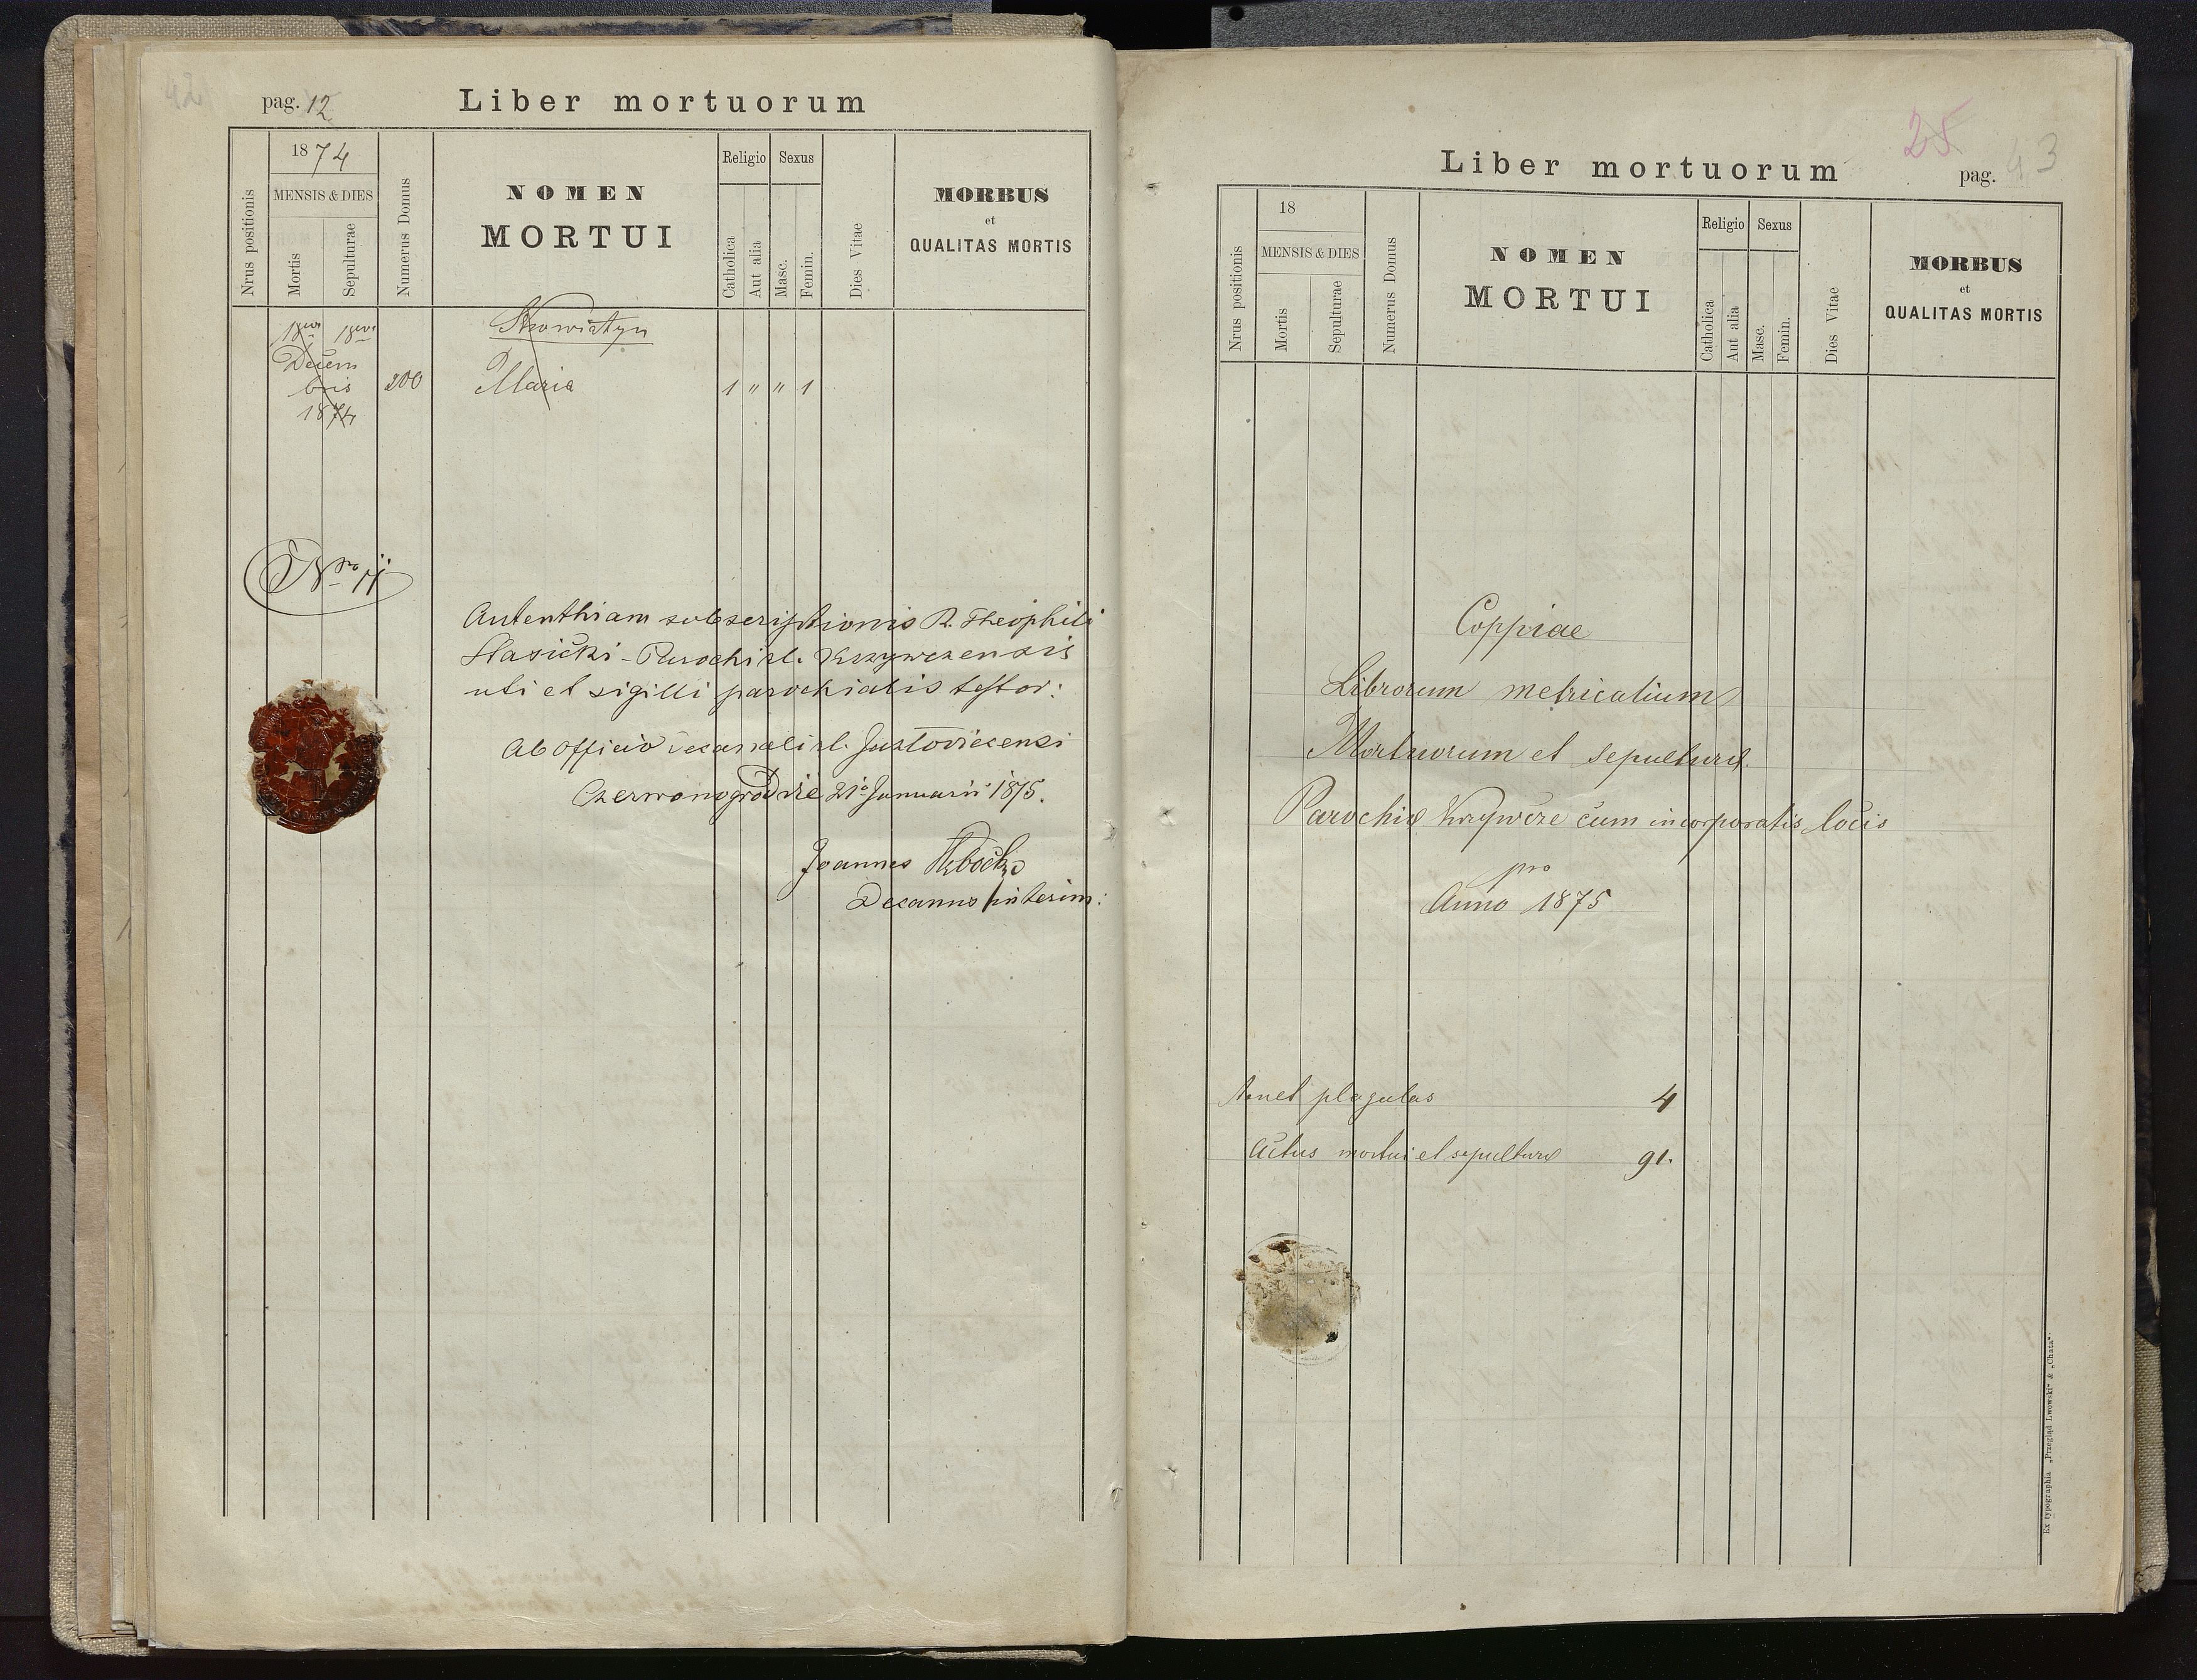 pag. 12
Liber mortuorum
1874
MENSIS & DIES
Nrus positionis
Mortis
Sepulturae
Numerus Domus
NOMEN
MORTUI
Religio
Sexus
Catholica
Aut alia
Masc.
Femin.
Dies Vitae
MORBUS
et
QUALITAS MORTIS
Decem
bris
1874
200
Maria
1 " " 1
Nro 11
Autenthiam subscriptionis R. Theophili
Parochi rl. Krzywczensis
uti et sigilli parochialis testor:
Ab Officio decanali rl.
Czerwonogrod die 21 Januarii 1875.
Joannes
Decanus interim:
25
43
Liber mortuorum
pag.
18
MENSIS & DIES
Nrus positionis
Mortis
Sepulturae
Numerus Domus
NOMEN
MORTUI
Religio
Sexus
Catholica
Aut alia
Masc.
Femin.
Dies Vitae
MORBUS
et
QUALITAS MORTIS
Coppiae
Librorum metricalium
Mortuorum et sepulturæ
Parochiæ Krzywcze cum incorporatis locis
pro
Anno 1875
plagulas 4
Actus mortui et sepulturæ 91.
Ex typographia „Przegląd Lwowski" & „Chata".